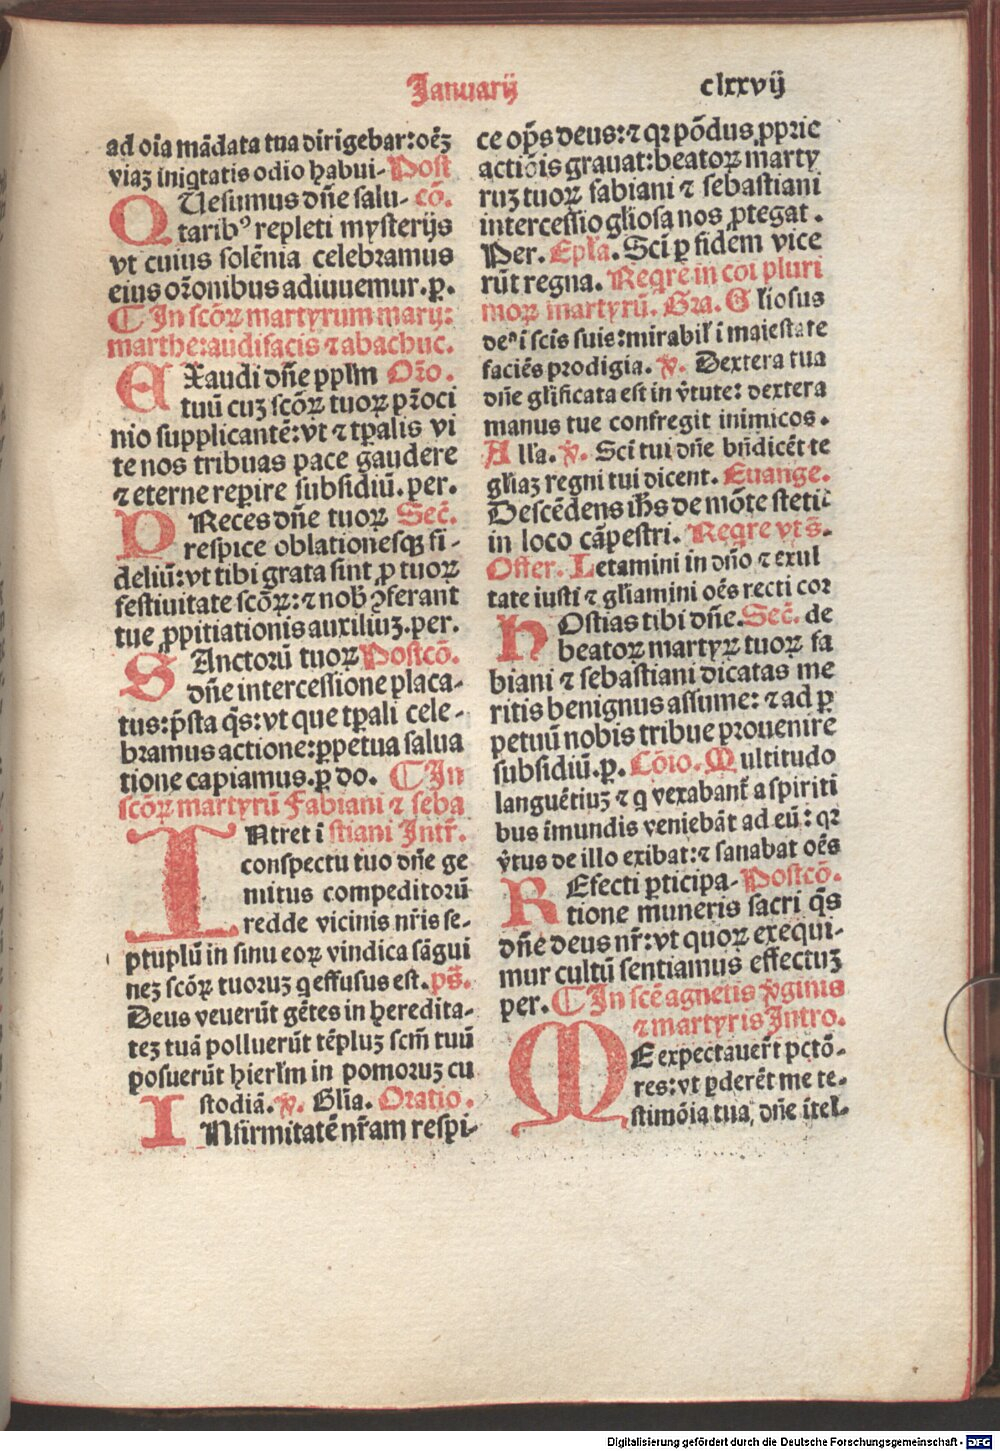 Januarij
clxxvij
ad oı̄a mādata tua dirigebar: oēꝫ
viaꝫ iniqtatis odio habui- Post
QUesumus dn̄e salu- cō.
taribꝰ repleti mysterijs
vt cuius solēnia celebramus
eius or̄onibus adiuuemur. ꝑ.
¶ In scōꝝ martyrum marij:
marthe: audifacis ⁊ abachuc.
EXaudi dn̄e pplm̄ Or̄o.
tuū cuꝫ scōꝝ tuoꝝ pr̄oci
nio supplicantē: vt ⁊ tp̄alis vi
te nos tribuas pace gaudere
⁊ eterne reꝑire subsidiū. per.
PReces dn̄e tuoꝝ Sec̄.
respice oblationesqꝫ fi-
deliū: vt tibi grata sint ꝓ tuoꝝ
festiuitate scōꝝ: ⁊ nob̄ ꝯferant
tue ꝓpitiationis auxiliuꝫ. per.
SAnctorū tuoꝝ Postcō.
dn̄e intercessione placa-
tus: p̄sta q̄s: vt que tp̄ali cele-
bramus actione: ꝑpetua salua
tione capiamus. ꝑ do. ¶ In
scōꝝ martyrū Fabiani ⁊ seba
INtret ī stiani Intr̄.
conspectu tuo dn̄e ge
mitus compeditorū
redde vicinis nr̄is se-
ptuplū in sinu eoꝝ vindica sāgui
neꝫ scōꝝ tuoruꝫ q effusus est. ps̄.
Deus veuerūt gētes in heredita-
teꝫ tuā polluerūt tēpluꝫ scm̄ tuū
posuerūt hierl̄m in pomoruꝫ cu
stodiā. ℣. Gl̄ia. Oratio.
INfirmitatē nr̄am respi-
ce op̄s deus: ⁊ qꝛ pōdus ꝓprie
actiōis grauat: beatoꝝ marty
ruꝫ tuoꝝ fabiani ⁊ sebastiani
intercessio gl̄iosa nos ꝓtegat.
Per. Epl̄a. Scī ꝑ fidem vice
rūt regna. Reqre in coi pluri
moꝝ martyrū. Gra. Gliosus
deꝰ ī scis suis: mirabil̄ ī maiestate
faciēs prodigia. ℣. Dextera tua
dn̄e gl̄ificata est in v̄tute: dextera
manus tue confregit inimicos.
All̄a. ℣. Scī tui dn̄e bn̄dicēt te
gl̄iaꝫ regni tui dicent. Euange.
Descēdens ih̄s de mōte stetit
in loco cāpestri. Reqre vt s̄.
Offer. Letamini in dn̄o ⁊ exul
tate iusti ⁊ gl̄iamini oēs recti cor
HOstias tibi dn̄e. Sec̄. de
beatoꝝ martyꝝ tuoꝝ fa
biani ⁊ sebastiani dicatas me
ritis benignus assume: ⁊ ad ꝑ
petuū nobis tribue prouenire
subsidiū. ꝑ. Cōio. Multitudo
languētiuꝫ ⁊ q vexabant̄ a spiriti
bus imundis veniebāt ad eū: qꝛ
v̄tus de illo exibat: ⁊ sanabat oēs
REfecti ꝑticipa- Postcō.
tione muneris sacri q̄s
dn̄e deus nr̄: vt quoꝝ exequi-
mur cultū sentiamus effectuꝫ
per. ¶ In scē agnetis v̄ginis
⁊ martyris Intro.
ME expectauer̄t pctō-
res: vt ꝑderēt me te-
stimōia tua, dn̄e ītel-
Digitalisierung gefördert durch die Deutsche Forschungsgemeinschaft - DFG